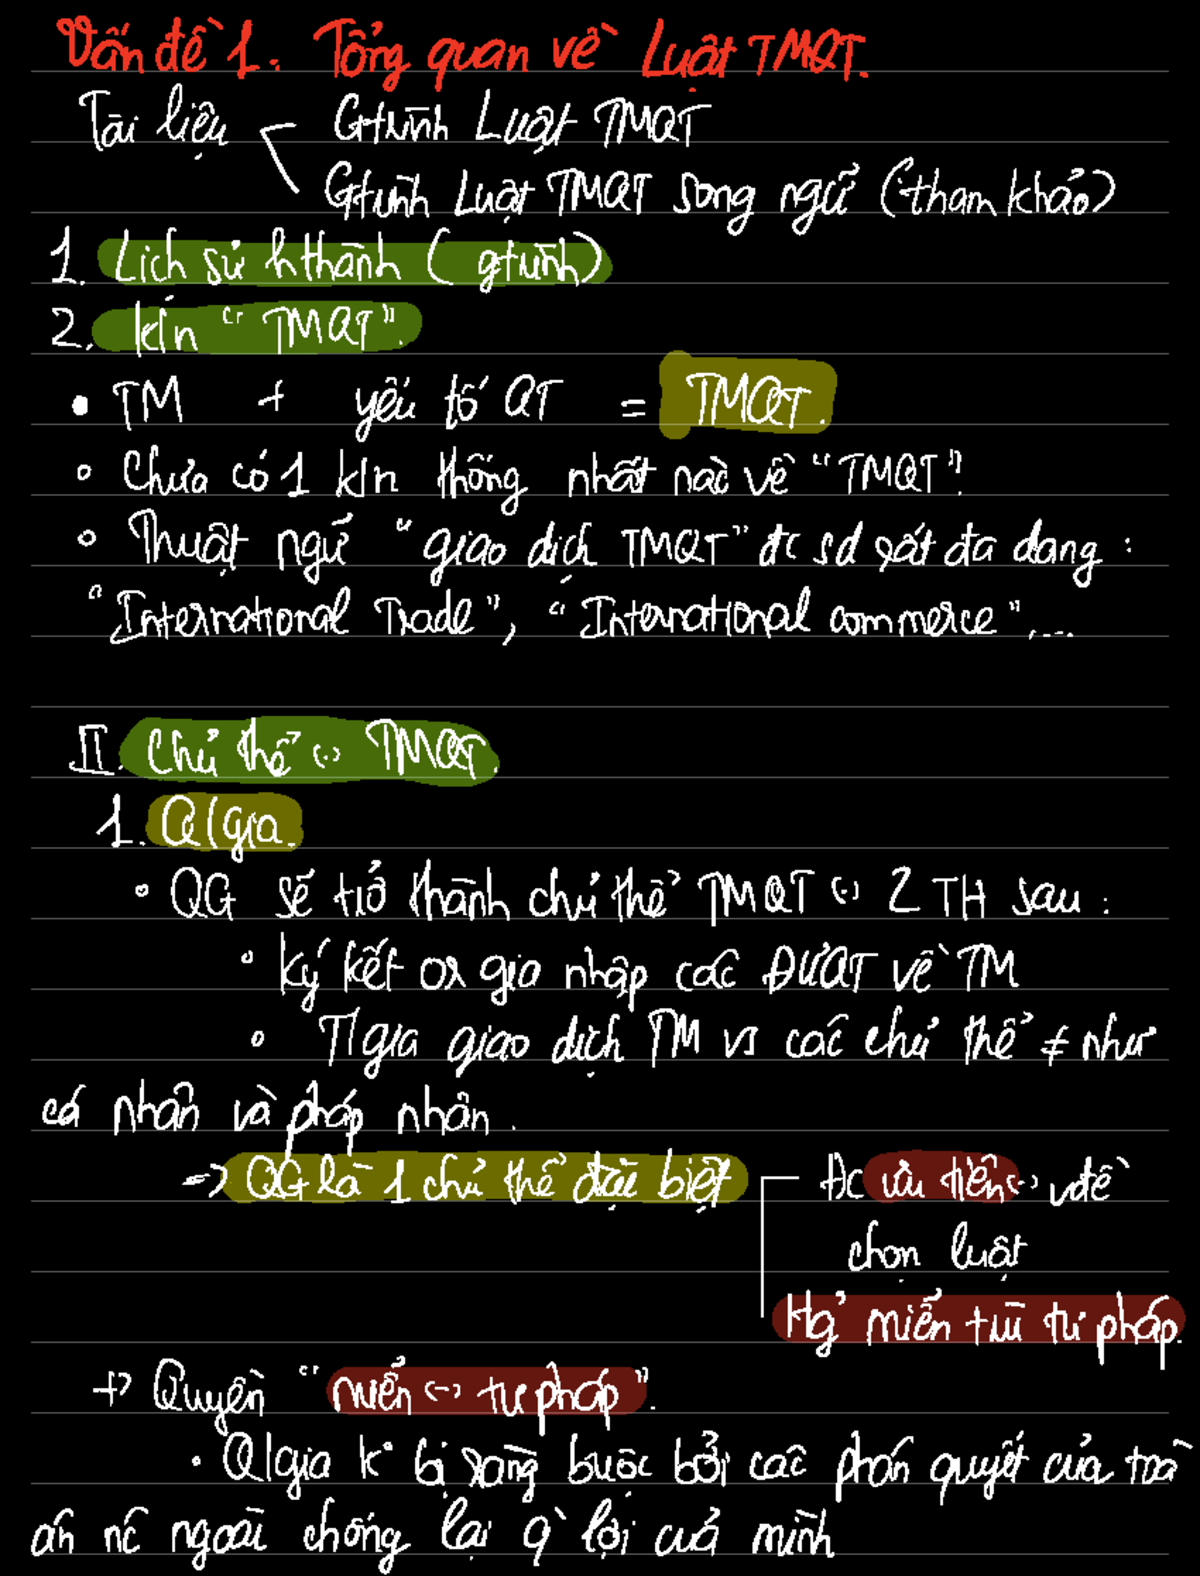 Vấn đề 1. Tổng quan về Luật TMQT.
Tài liệu < Gtrình Luật TMQT
Gtrình Luật TMQT song ngữ (tham khảo)
1. Lịch sử hthành (gtrình)
2. kín "TMQT".
• TM + yếu tố QT = TMQT.
∘ Chưa có 1 kín thống nhất nào về "TMQT".
∘ Thuật ngữ "giao dịch TMQT" đc sd rất đa dạng:
"International Trade", "International commerce",...
II. Chủ thể (-) TMQT.
1. Q/gia.
∘ QG sẽ trở thành chủ thể TMQT (-) 2 TH sau:
∘ Ký kết or gia nhập các ĐƯQT về TM
∘ T/gia giao dịch TM vs các chủ thể ≠ như
cá nhân và pháp nhân.
=> QG là 1 chủ thể đặc biệt
Đc ưu tiên (-) vđề
chọn luật
Hg' miễn trừ tư pháp.
+> Quyền "miễn (-) tư pháp".
• Q/gia k° bị ràng buộc bởi các phán quyết của toà
án nc ngoài chống lại q` lợi của mình